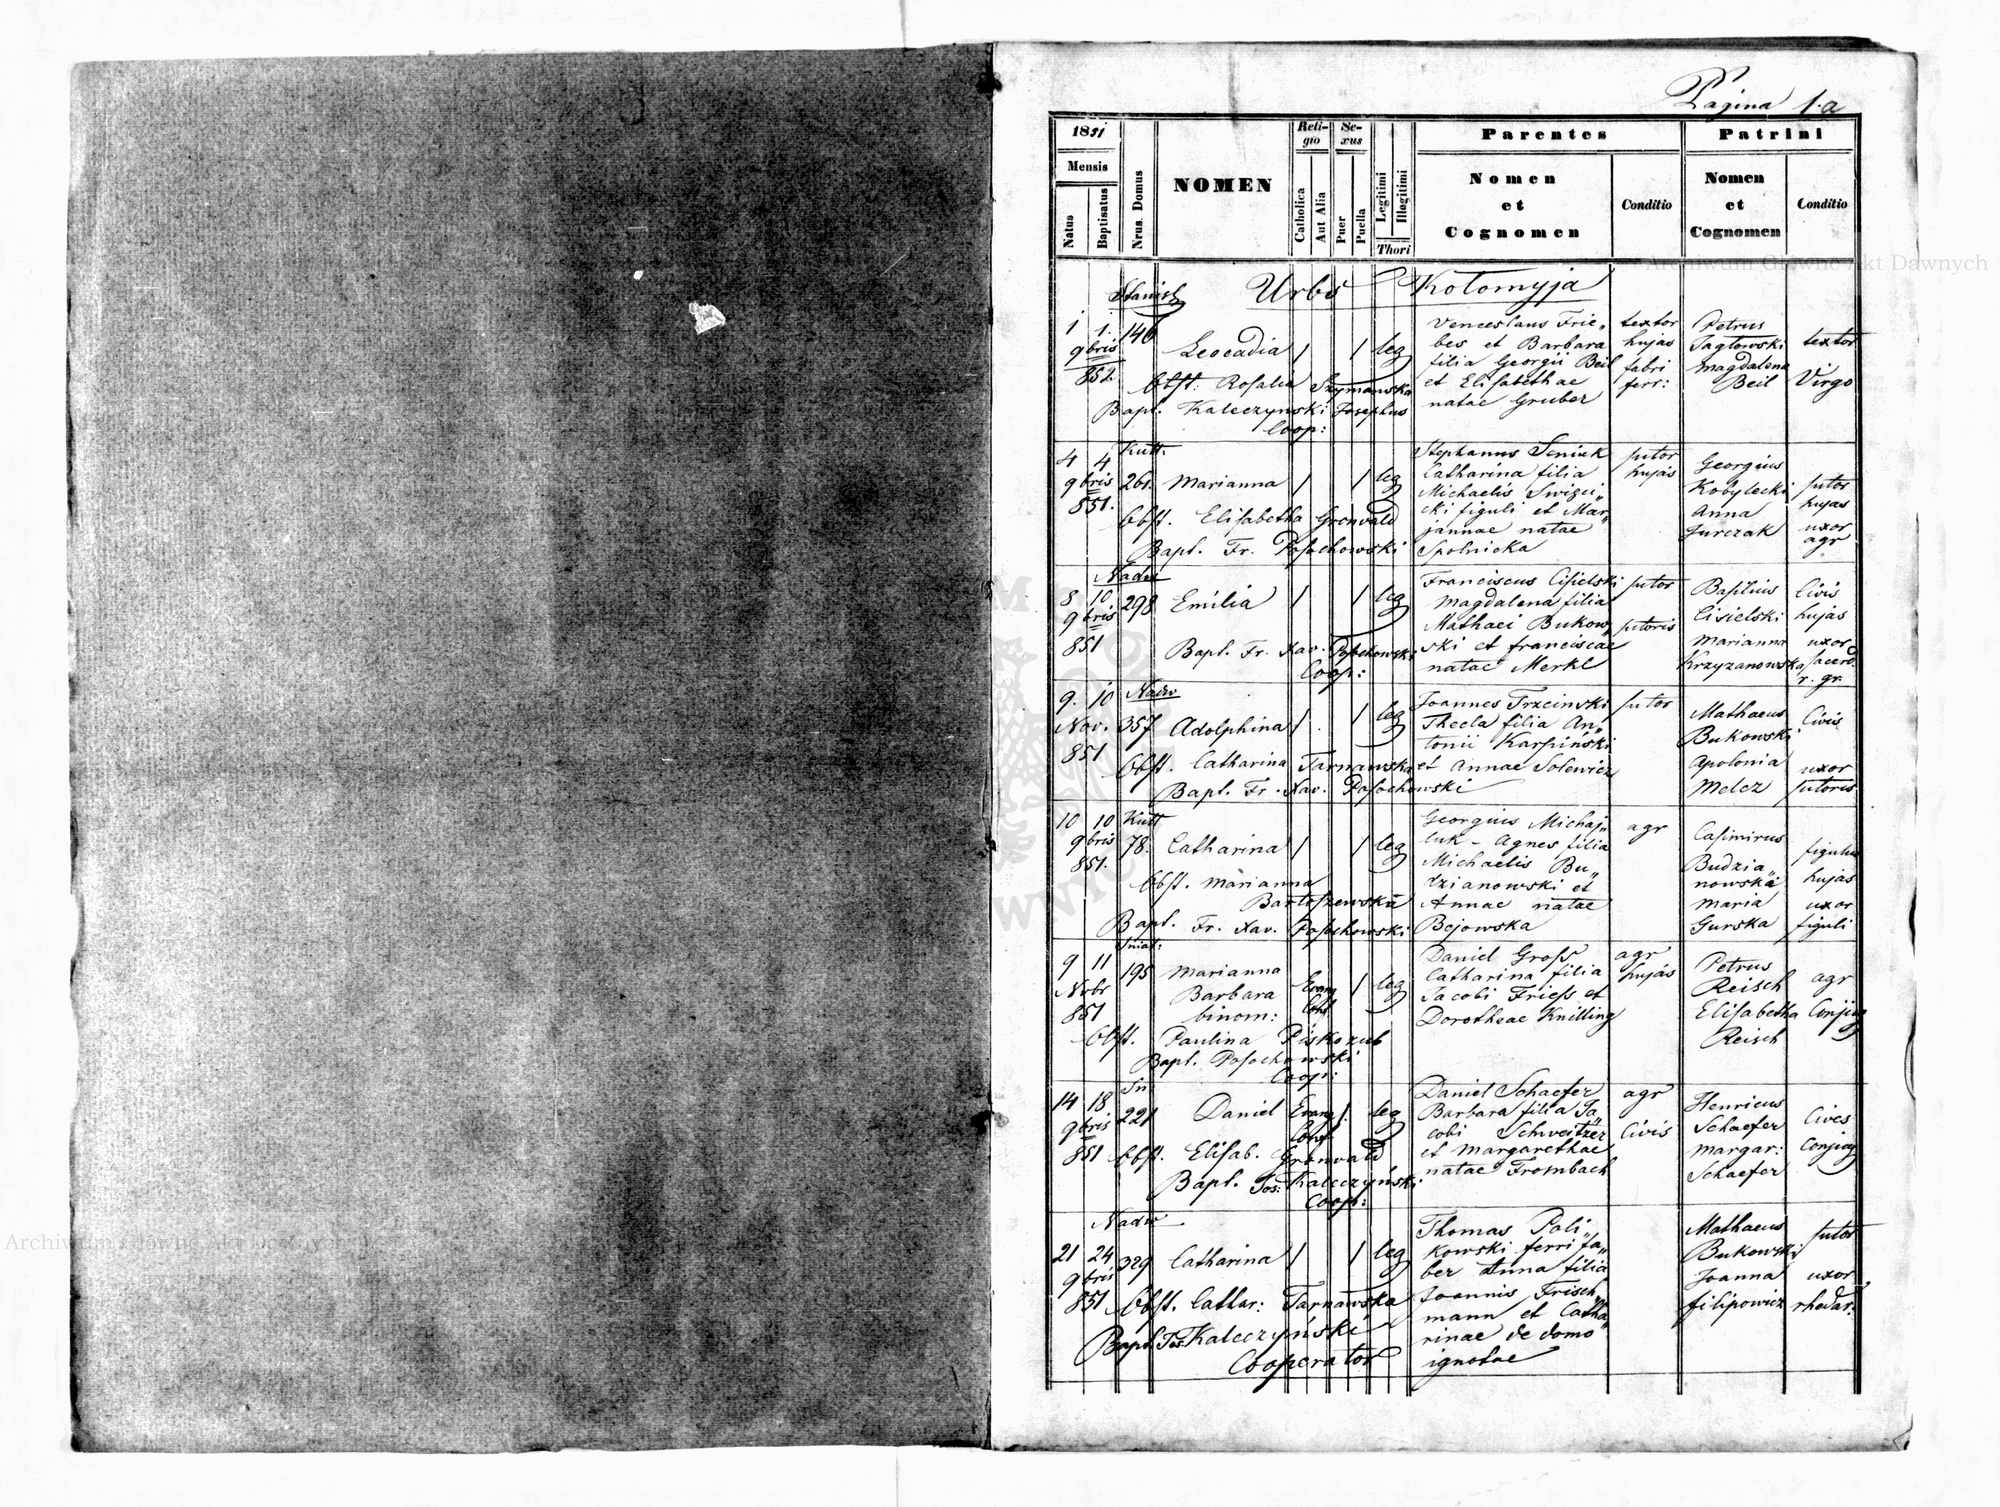 Pagina 1.a
1851
Mensis
Natus
Baptisatus
Nrus. Domus
NOMEN
Reli-
gio
Catholica
Aut Alia
Se-
xus
Puer
Puella
Legitimi
Illegitimi
Thori
Parentes
Nomen
et
Cognomen
Conditio
Patrini
Nomen
et
Cognomen
Conditio
Archiwum Główne Akt Dawnych
Urbs Kołomyja
Stanisl
1 1. 146
9bris
852
Leocadia 1 1 leg
Obst. Rosalia Szymanska
Bapt. Kaleczynski Josephus
Coop:
Venceslaus Frie„
bes et Barbara
filia Georgii Beil
et Elisabethae
natae Gruber
textor
hujas
fabri
ferr:
Petrus
Jagłowski
Magdalena
Beil
textor
Virgo
Kutt.
4 4
9bris 261. Marianna 1 1 leg
851.
Obst. Elisabetha Gronvald
Bapt. Fr. Posochowski
Stephanus Seniuk
Catharina filia
Michaelis Swizci„
cki figuli et Mar„
jannae natae
Spolnicka
sutor
hujas
Georgius
Kobylecki
Anna
Jurczak
sutor
hujas
uxor
agr
Nadw
8 10 298 Emilia 1 1 leg
9bris
851
Bapt. Fr. Xav. Posochowski
Coop:
Franciscus Cisielski
Magdalena filia
Mathaei Bukow„
ski et franciscae
natae Merkl
sutor
sutoris
Basilius
Cisielski
Marianna
Krzyzanowska
Civis
hujas
uxor
sacerd.
r. gr.
Nadw
9. 10
Nov. 357 Adolphina 1 1 leg
851
Obst. Catharina Tarnawska
Bapt. Fr. Xav. Posochowski
Joannes Trzcinski
Thecla filia An„
tonii Karpiński
et Annae Solewicz
sutor
Mathaeus
Bukowski
Apolonia
Melcz
Civis
uxor
sutoris
Kutt
10 10
9bris 78. Catharina 1 1 leg
851.
Obst. Marianna
Bartoszewska
Bapt. Fr. Xav. Posochowski
Georgius Michaj„
luk - Agnes filia
Michaelis Bu„
dzianowski et
Annae natae
Bojowska
agr
Casimirus
Budzia„
nowski
Maria
Gurska
figulus
hujas
uxor
figuli
Sniat:
9 11 195 Marianna
Novbr Barbara Evang 1 leg
851 binom: Conf
Obst. Paulina Piskozub
Bapt. Posochowski
Coop:
Daniel Gross
Catharina filia
Jacobi Friess et
Dorotheae Knilling
agr
hujas
Petrus
Reisch
Elisabetha
Reisch
agr
Conjug
Sn
14 18 221 Daniel Evang 1. leg
9bris Conf
851 Obst. Elisab. Gronvald
Bapt. Jos: Kaleczyński
Coop:
Daniel Schaefer
Barbara filia Ja„
cobi Schweitzer
et Margarethae
natae Frombach
agr
Civis
Henricus
Schaefer
Margar:
Schaefer
Cives
Conjug
Nadw
21 24 329 Catharina 1 1 leg
9bris
851 Obst. Cathar: Tarnawska
Bapt. Jos. Kaleczyński
Cooperator
Thomas Pali„
kowski ferri fa„
ber Anna filia
Joannis Frisch„
mann et Catha„
rinae de domo
ignotae
Mathaeus
Bukowski
Joanna
filipowicz
sutor
uxor
rhedar:
Archiwum Główne Akt Dawnych